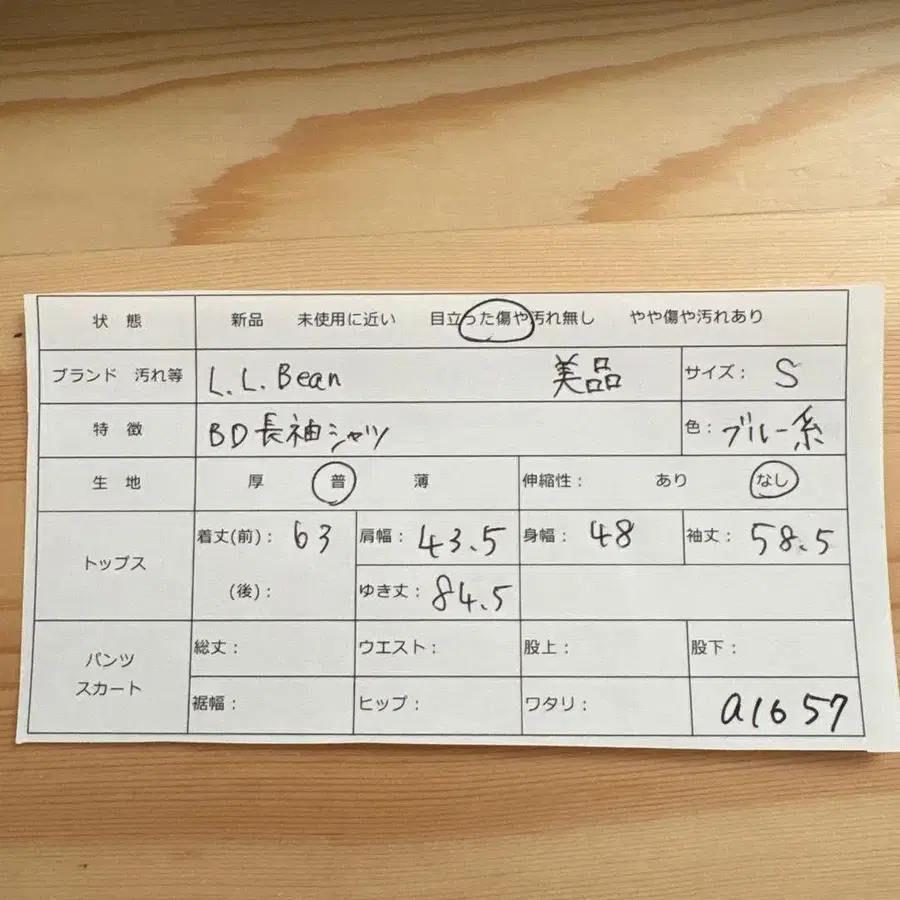 状 態 新品 未使用に近い 目立った傷や汚れ無し やや傷や汚れあり
ブランド 汚れ等 L.L.Bean 美品 サイズ： S
特 徴 BD長袖シャツ 色： ブルー系
生 地 厚 普 薄 伸縮性： あり なし
トップス 着丈(前)： 63 肩幅： 43.5 身幅： 48 袖丈： 58.5
(後)： ゆき丈： 84.5
パンツ スカート 総丈： ウエスト： 股上： 股下：
裾幅： ヒップ： ワタリ： a1657